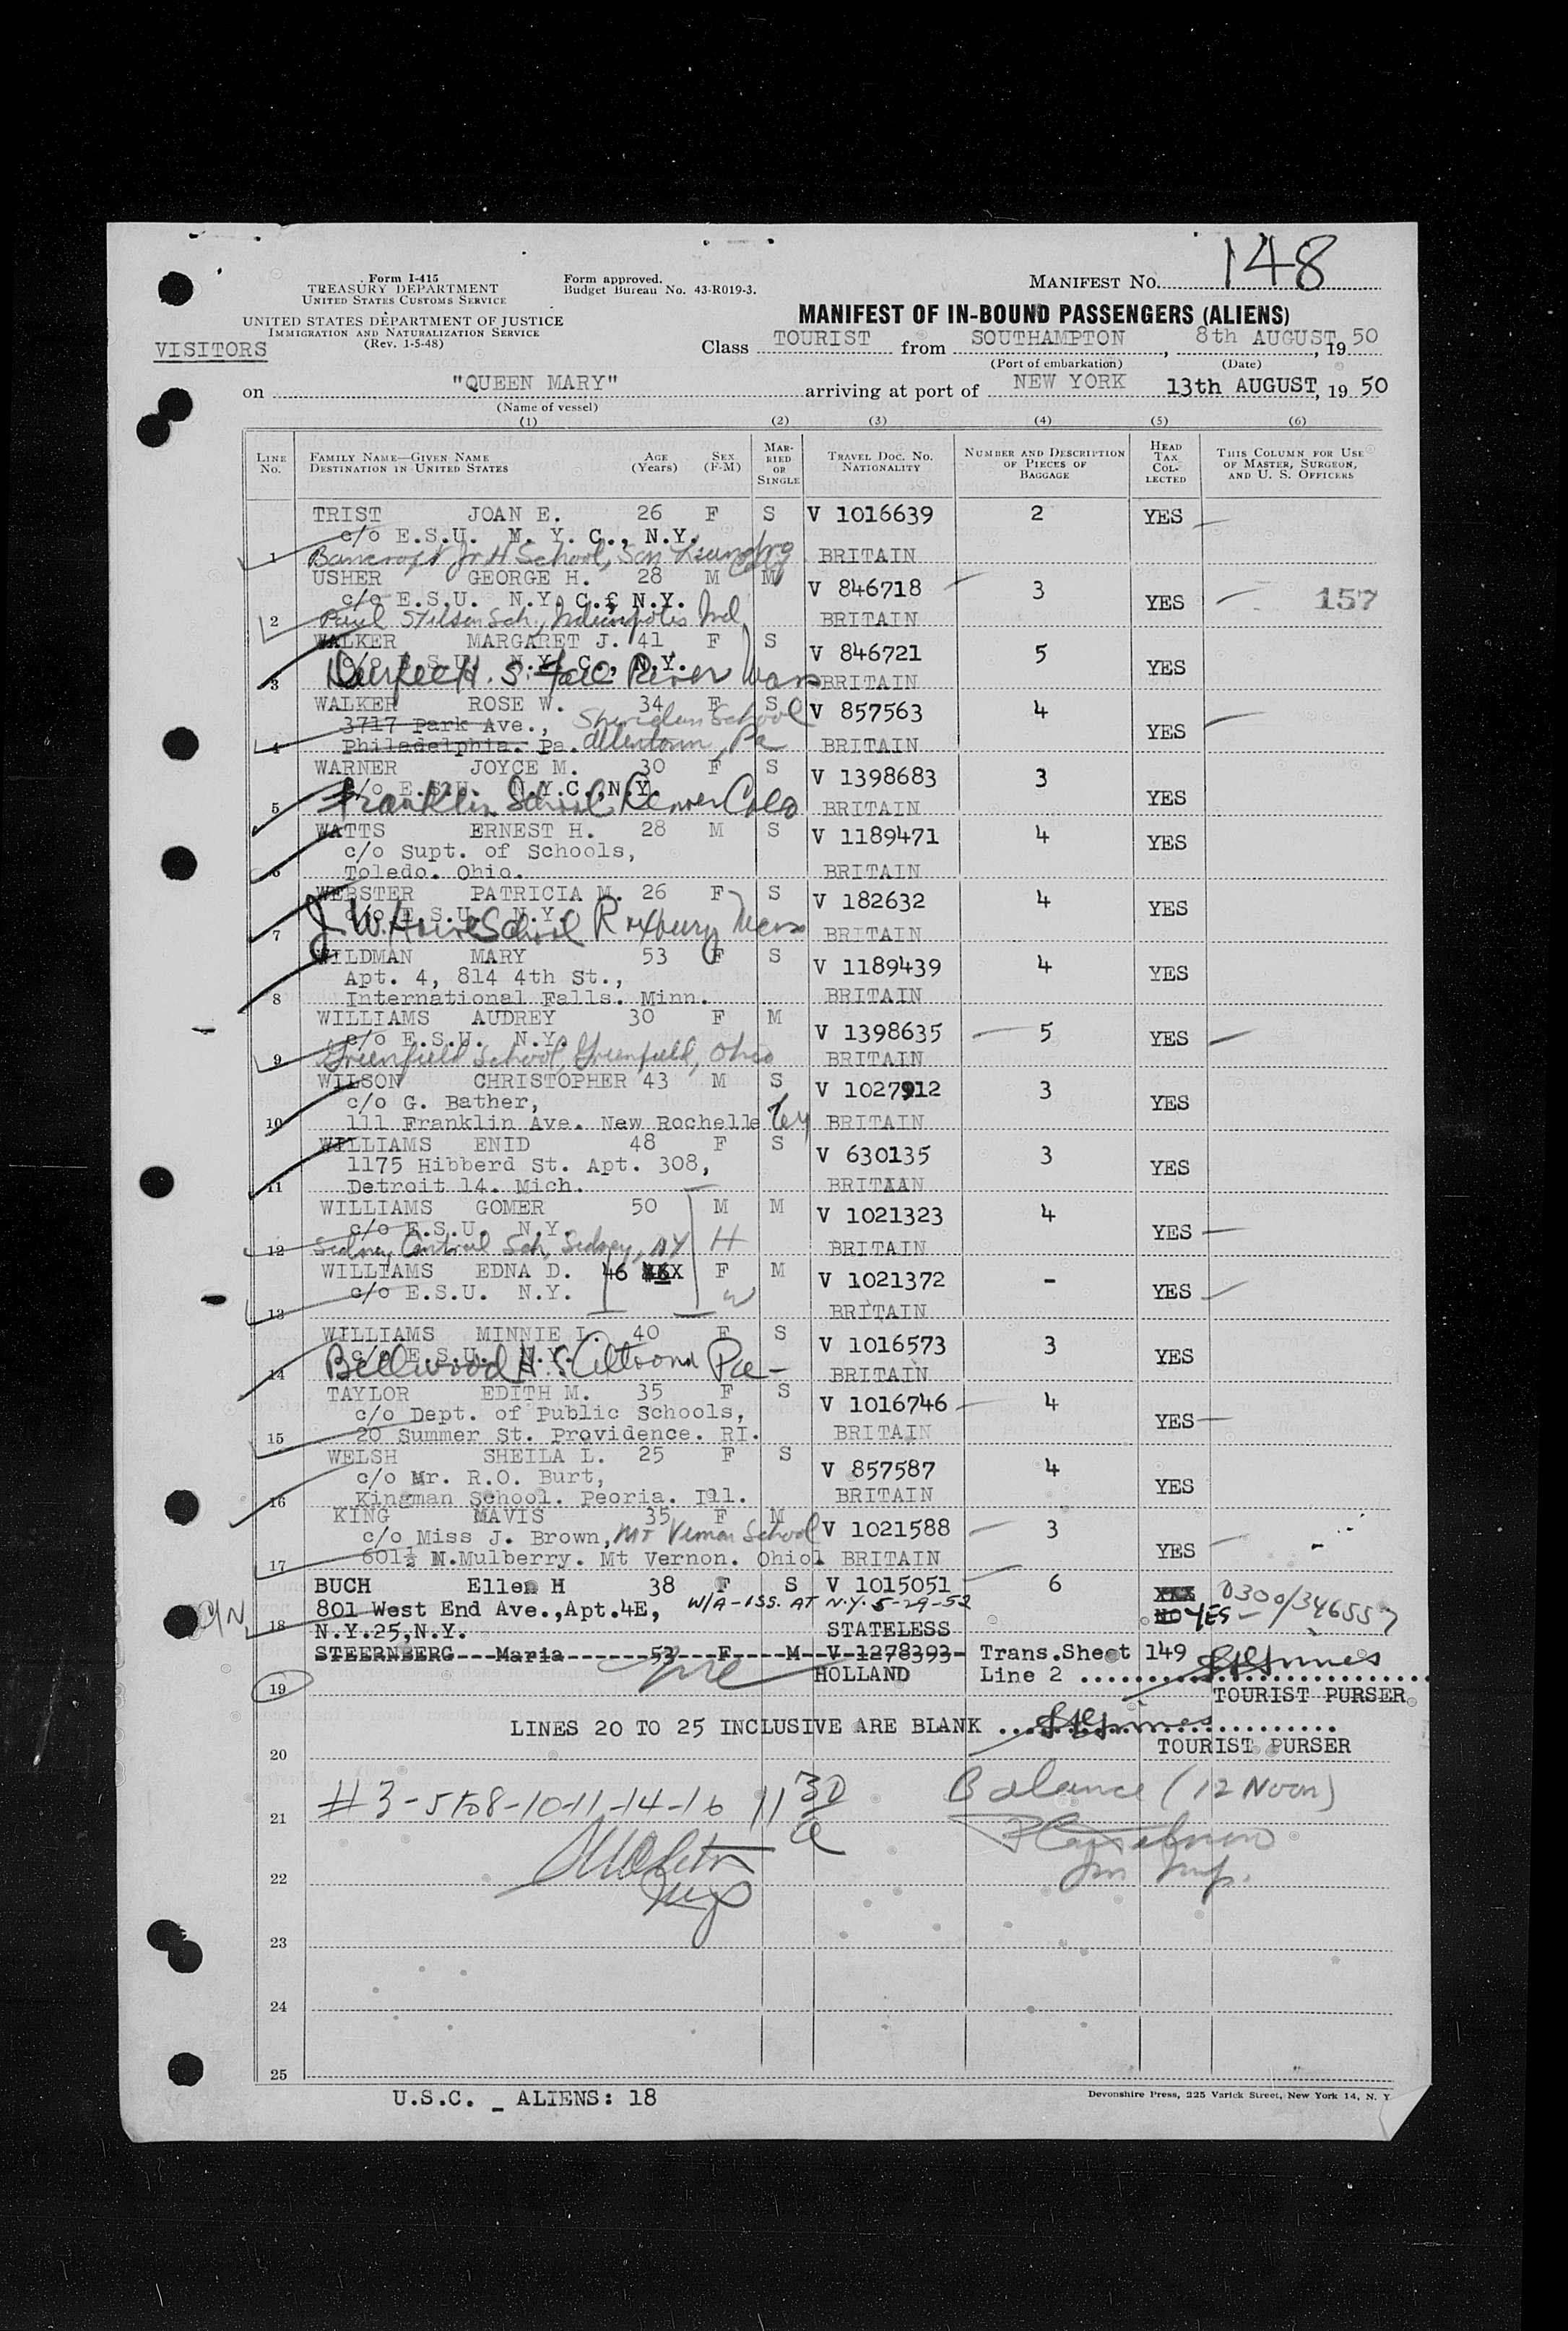 Form I-415
TREASURY DEPARTMENT
UNITED STATES CUSTOMS SERVICE
Form approved.
Budget Bureau No. 43-R019-3.
MANIFEST No. 148
UNITED STATES DEPARTMENT OF JUSTICE
IMMIGRATION AND NATURALIZATION SERVICE
(Rev. 1-5-48)
VISITORS
MANIFEST OF IN-BOUND PASSENGERS (ALIENS)
Class TOURIST from SOUTHAMPTON, 8th AUGUST, 19 50
(Port of embarkation) (Date)
on "QUEEN MARY" arriving at port of NEW YORK 13th AUGUST, 19 50
(Name of vessel)
(1) (2) (3) (4) (5) (6)
LINE No. FAMILY NAME—GIVEN NAME DESTINATION IN UNITED STATES AGE (Years) SEX (F-M) MARRIED OR SINGLE TRAVEL DOC. NO. NATIONALITY NUMBER AND DESCRIPTION OF PIECES OF BAGGAGE HEAD TAX COLLECTED THIS COLUMN FOR USE OF MASTER, SURGEON, AND U. S. OFFICERS
TRIST JOAN E. 26 F S V 1016639 2 YES
c/o E.S.U. M. Y. C., N.Y.
1 Bancroft Jr H School, San Leandro Calif BRITAIN
USHER GEORGE H. 28 M M V 846718 3 YES 157
c/o E.S.U. N.Y. C.£ N.Y.
2 Paul Stilson Sch., Indianapolis Ind. BRITAIN
WALKER MARGARET J. 41 F S V 846721 5 YES
c/o E.S.U. N.Y. C., N.Y.
3 Durfee H. S. Fall River Mass BRITAIN
WALKER ROSE W. 34 F S V 857563 4 YES
3717 Park Ave., Sheridan School
4 Philadelphia. Pa. Allentown, Pa BRITAIN
WARNER JOYCE M. 30 F S V 1398683 3 YES
c/o E.S.U. N.Y.C., N.Y.
5 Franklin School Denver Colo BRITAIN
WATTS ERNEST H. 28 M S V 1189471 4 YES
c/o Supt. of Schools,
6 Toledo. Ohio. BRITAIN
WEBSTER PATRICIA M. 26 F S V 182632 4 YES
c/o E.S.U. N.Y.
7 J. W. Howe School Roxbury Mass BRITAIN
WILDMAN MARY 53 F S V 1189439 4 YES
Apt. 4, 814 4th St.,
8 International Falls. Minn. BRITAIN
WILLIAMS AUDREY 30 F M V 1398635 5 YES
c/o E.S.U. N.Y.
9 Greenfield School, Greenfield, Ohio BRITAIN
WILSON CHRISTOPHER 43 M S V 1027912 3 YES
c/o G. Bather,
10 111 Franklin Ave. New Rochelle NY BRITAIN
WILLIAMS ENID 48 F S V 630135 3 YES
1175 Hibberd St. Apt. 308,
11 Detroit 14. Mich. BRITAAN
WILLIAMS GOMER 50 M M V 1021323 4 YES
c/o E.S.U. N.Y.
12 Sidney Central Sch, Sidney, NY H BRITAIN
WILLIAMS EDNA D. 46 F M V 1021372 - YES
c/o E.S.U. N.Y. W
13 BRITAIN
WILLIAMS MINNIE I. 40 F S V 1016573 3 YES
c/o E.S.U. N.Y.
14 Bellwood H. S. Altoona Pa - BRITAIN
TAYLOR EDITH M. 35 F S V 1016746 4 YES
c/o Dept. of Public Schools,
15 20 Summer St. Providence. RI. BRITAIN
WELSH SHEILA L. 25 F S V 857587 4 YES
c/o Mr. R.O. Burt,
16 Kingman School. Peoria. Ill. BRITAIN
KING MAVIS 35 F M V 1021588 3 YES
c/o Miss J. Brown, Mt Vernon School
17 601½ N.Mulberry. Mt Vernon. Ohio. BRITAIN
BUCH Ellen H 38 F S V 1015051 6 XXX 0300/346557
801 West End Ave.,Apt.4E, W/A-ISS. AT N.Y. 5-29-52 NO YES
18 N.Y.25,N.Y. STATELESS
STEERNBERG---Maria-------53---F----M--V-1278393- Trans.Sheet 149
HOLLAND Line 2
19 TOURIST PURSER
LINES 20 TO 25 INCLUSIVE ARE BLANK
20 TOURIST PURSER
21 #3-5 to 8-10-11-14-16 11 30 a Balance (12 Noon)
22
23
24
25
U.S.C. _ ALIENS: 18
Devonshire Press, 225 Varick Street, New York 14, N. Y